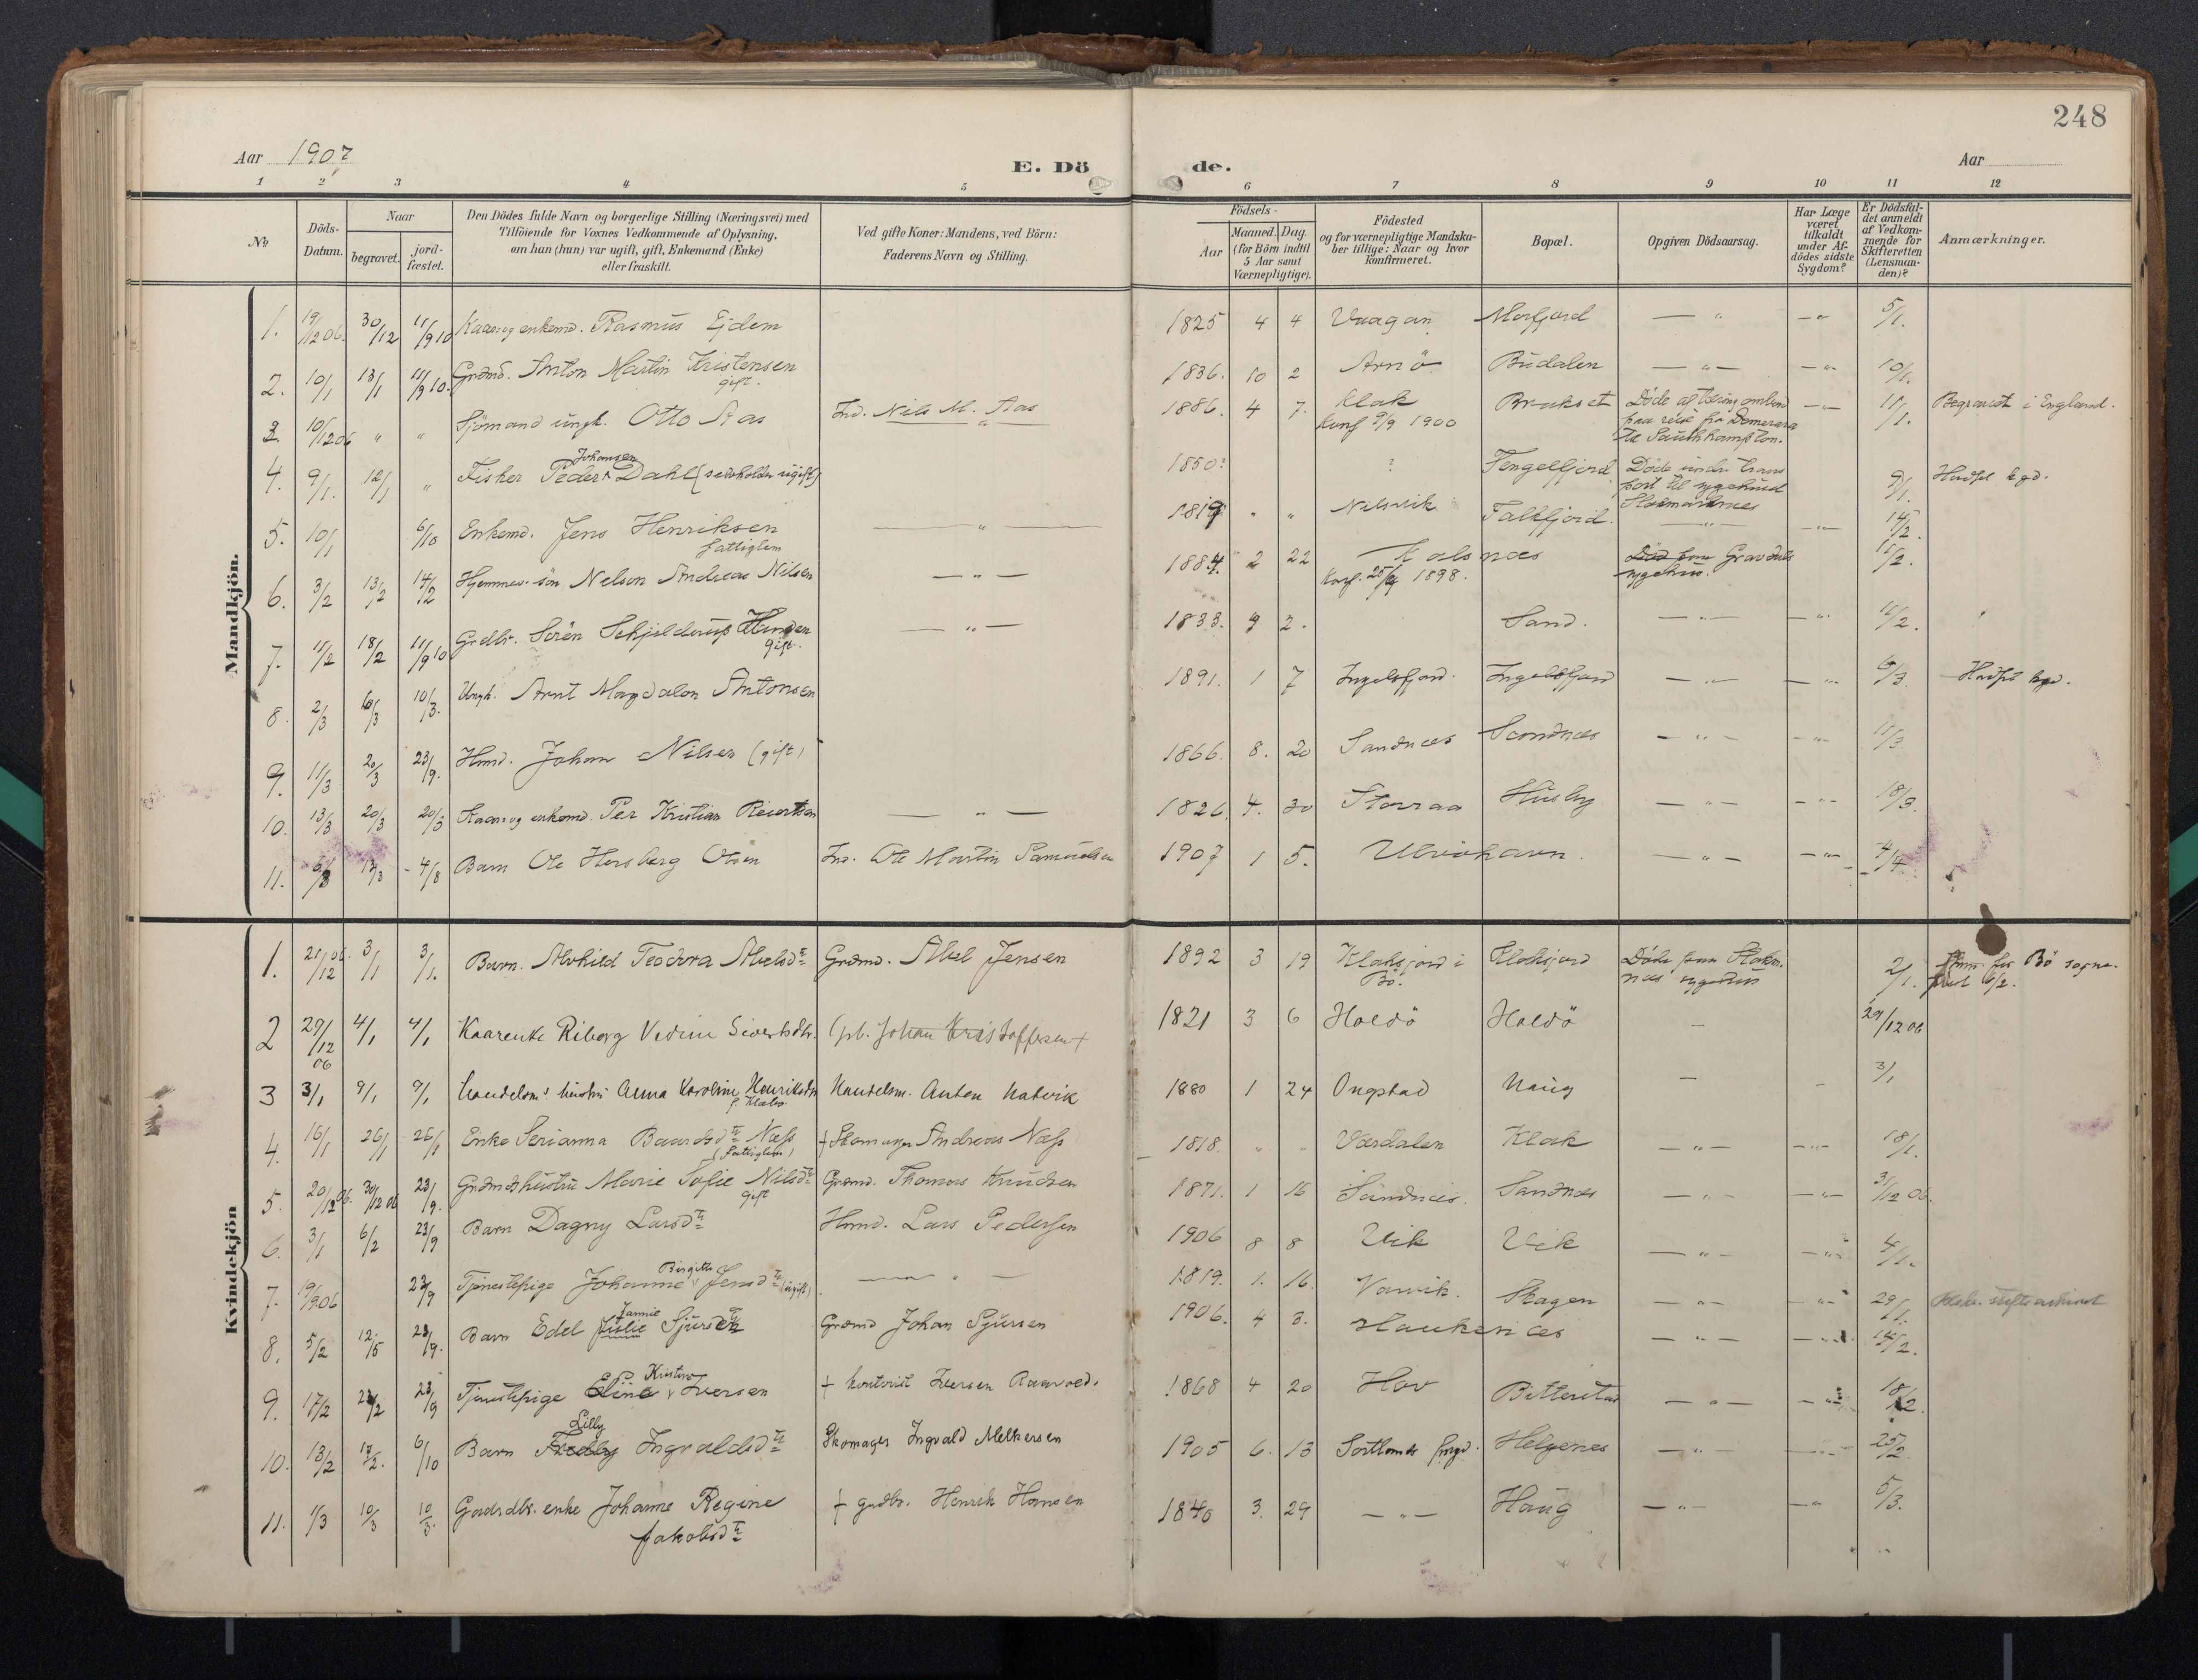 248
Aar 1907
E. Dö
de.
Aar
1 2 3 4 5 6 7 8 9 10 11 12
№
Döds-
Datum.
Naar
begravet.
jord-
fæstet.
Den Dödes fulde Navn og borgerlige Stilling (Næringsvei) med
Tilföiende for Voxnes Vedkommende af Oplysning,
om han (hun) var ugift, gift, Enkemand (Enke)
eller fraskilt.
Ved gifte Koner: Mandens, ved Börn:
Faderens Navn og Stilling.
Födsels-
Aar
Maaned. Dag.
(for Börn indtil
5 Aar samt
Værnepligtige).
Födested
og for værnepligtige Mandska-
ber tillige: Naar og hvor
konfirmeret.
Bopæl.
Opgiven Dödsaarsag.
Har Læge
været
tilkaldt
under Af-
dödes sidste
Sygdom?
Er Dödsfal-
det anmeldt
af Vedkom-
mende for
Skifteretten
(Lensman-
den)?
Anmærkninger.
Mandkjön.
1. 19/12 06. 30/12 11/9 10 Kaar og enkemd. Rasmus Ejdem 1825 4 4 Vaagan Morfjord — " — 5/1.
2. 10/1 13/1 11/9 10. Grdmd. Anton Martin Kristensen 1836. 10 2 Arnö Budalen — " — 10/1.
gift.
3. 10/12 06 " " Sjömand ungk. Otto Aas Ind. Nils M. Aas 1886. 4 7. Klak Brukset Döde af tæring ombord 11/1. Begravet i England.
Konf 9/9 1900 paa reise fra Demerara
til Southhampton.
4. 9/1. 12/1 " Fisker Peder Johansen Dahl (selvholden ugift) 1850? ? Fengelfjord Döde under trans 9/1. Hadsel kgd.
port til sygehuset
Stokmarknes
5. 10/1 6/10 Enkemd. Jens Henriksen — " — 1819 " " Nilsvik Falkfjord — " — 14/2.
fattiglem
6. 3/2 13/2 14/2 Hjemmev. sön Nelson Andreas Nilsen — " — 1884. 2 22 Kalsnæs Död paa Gravdals 15/2.
Konf. 25/9 1898. sygehus.
7. 11/2 18/2 11/9 10 Grdbr. Sören Schjelderup Hansen — " — 1833. 9 2. Sand. — " — 12/2.
Gift.
8. 2/3 10/3 10/3. Ungk. Arnt Magdalon Antonsen 1891. 1 7 Ingelsfjord. Ingelsfjord — " — 6/3 Hadsel kgd.
9. 11/3 20/3 23/9. Hmd. Johan Nilsen (gift) 1866. 8. 20 Sandnæs Sandnæs — " — 11/3
10. 13/3 20/3 20/3 Kaar og enkemd. Per Kristian Reiertsen — " — 1826. 4. 30 Storraa Husby — " — 18/3.
11. 6/3 13/3 4/8 Barn Ole Hersberg Olsen Ind. Ole Martin Samuelsen 1907 1 5. Ulvöhavn. — " — 4/4.
Kvindekjön
1. 21/12 06. 3/1 3/1. Barn. Alvhild Teodora Abelsdtr Grdmd. Abel Jensen 1892 3 19 Klaksjord i Klaksjord Döde paa Stokm. 2/1. Bö sogne.
Bö. næs sygehus 6/2.
2 29/12 06 4/1 4/1 Kaarenke Riborg Vedine Sivertsdtr. (pb. Johan Kristoffersen+ 1821 3 6 Holdö Holdö — 29/12 06
3 3/1 9/1 9/1 Handelsm's hustru Anna Karoline Henriksdtr Handelsm. Anton Hatvik 1880 1 24 Ongstad Haug — 3/1
4. 16/1 26/1 26/1 Enke Serianna Baardsdtr Næss + Skomager Andreas Næss 1818. " " Værdalen Klak — " — 18/1.
(fattiglem)
5. 20/12 06. 30/12 06 23/9. Grdmdshustru Marie Sofie Nilsdtr Grdmd. Thomas Knudsen 1871. 1 16 Sandnæs. Sandnæs — " — 31/12 06.
gift
6. 3/1 6/2 23/9 Barn Dagny Larsdtr Hmd. Lars Pedersen 1906 8 8 Vik Vik — " — 4/1.
7. 19/1906 23/9 Tjenestepige Johanne Birgitte Jensdtr (ugift) — " — 1819. 1. 16. Vaarvik. Skagen — " — 29/1.
8. 5/2 12/5 23/9. Barn Edel Jannie Julie Sjursdtr Grdmd Johan Sjursen 1906. 4 3. Haukenæs — " — 14/2.
9. 17/2 23/2 23/9 Tjenestepige Eline Kristine Iversen + kontorist Iversen 1868 4 20 Hov Bitterstad — " — 18/2.
10. 13/2 17/2. 6/10 Barn Lilly Ingvaldsdtr Skomager Ingvald Melkersen 1905 6. 13 Sortlands prgd. Helgenes — " — 25/2.
11. 1/3 10/3 10/3. Gaardbr. enke Johanne Regine + grdbr. Henrik Hansen 1840 3. 29 — " — Haug — " — 5/3.
Jakobsdtr